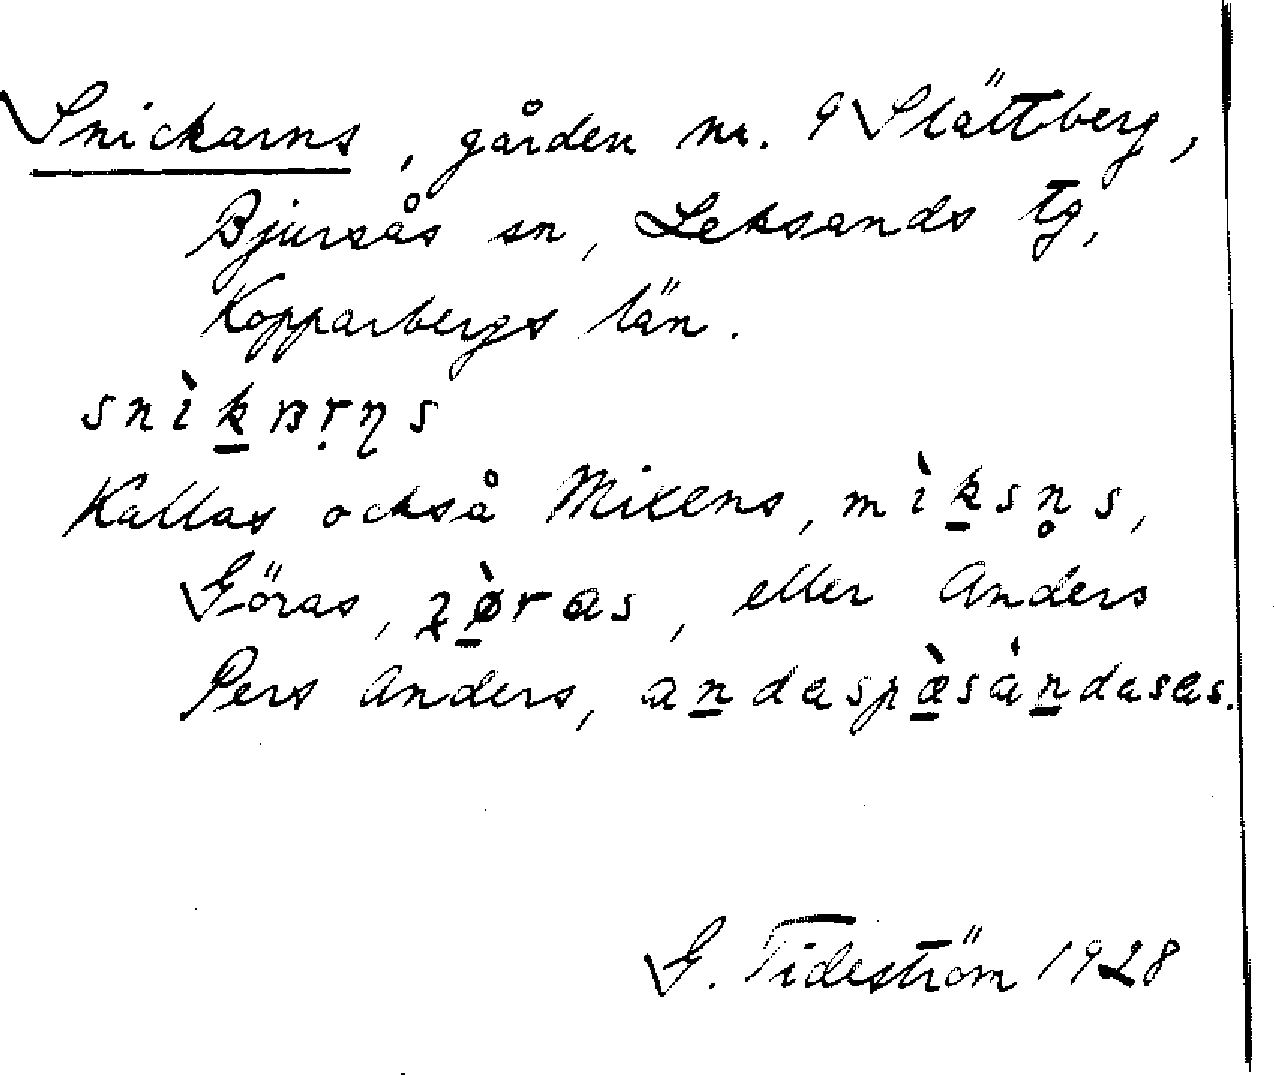 Snickarns, gården nr. 9 Slättberg,
Bjursås sn, Leksands tg,
Kopparbergs län.
snìk̲aṛŋs
Kallas också Mickens, mìk̲sn̥s,
Göras, ʒø̲̀ras, eller Anders
Pers Anders, an̲daspæ̲̀sán̲dasas.
G. Tideström 1928